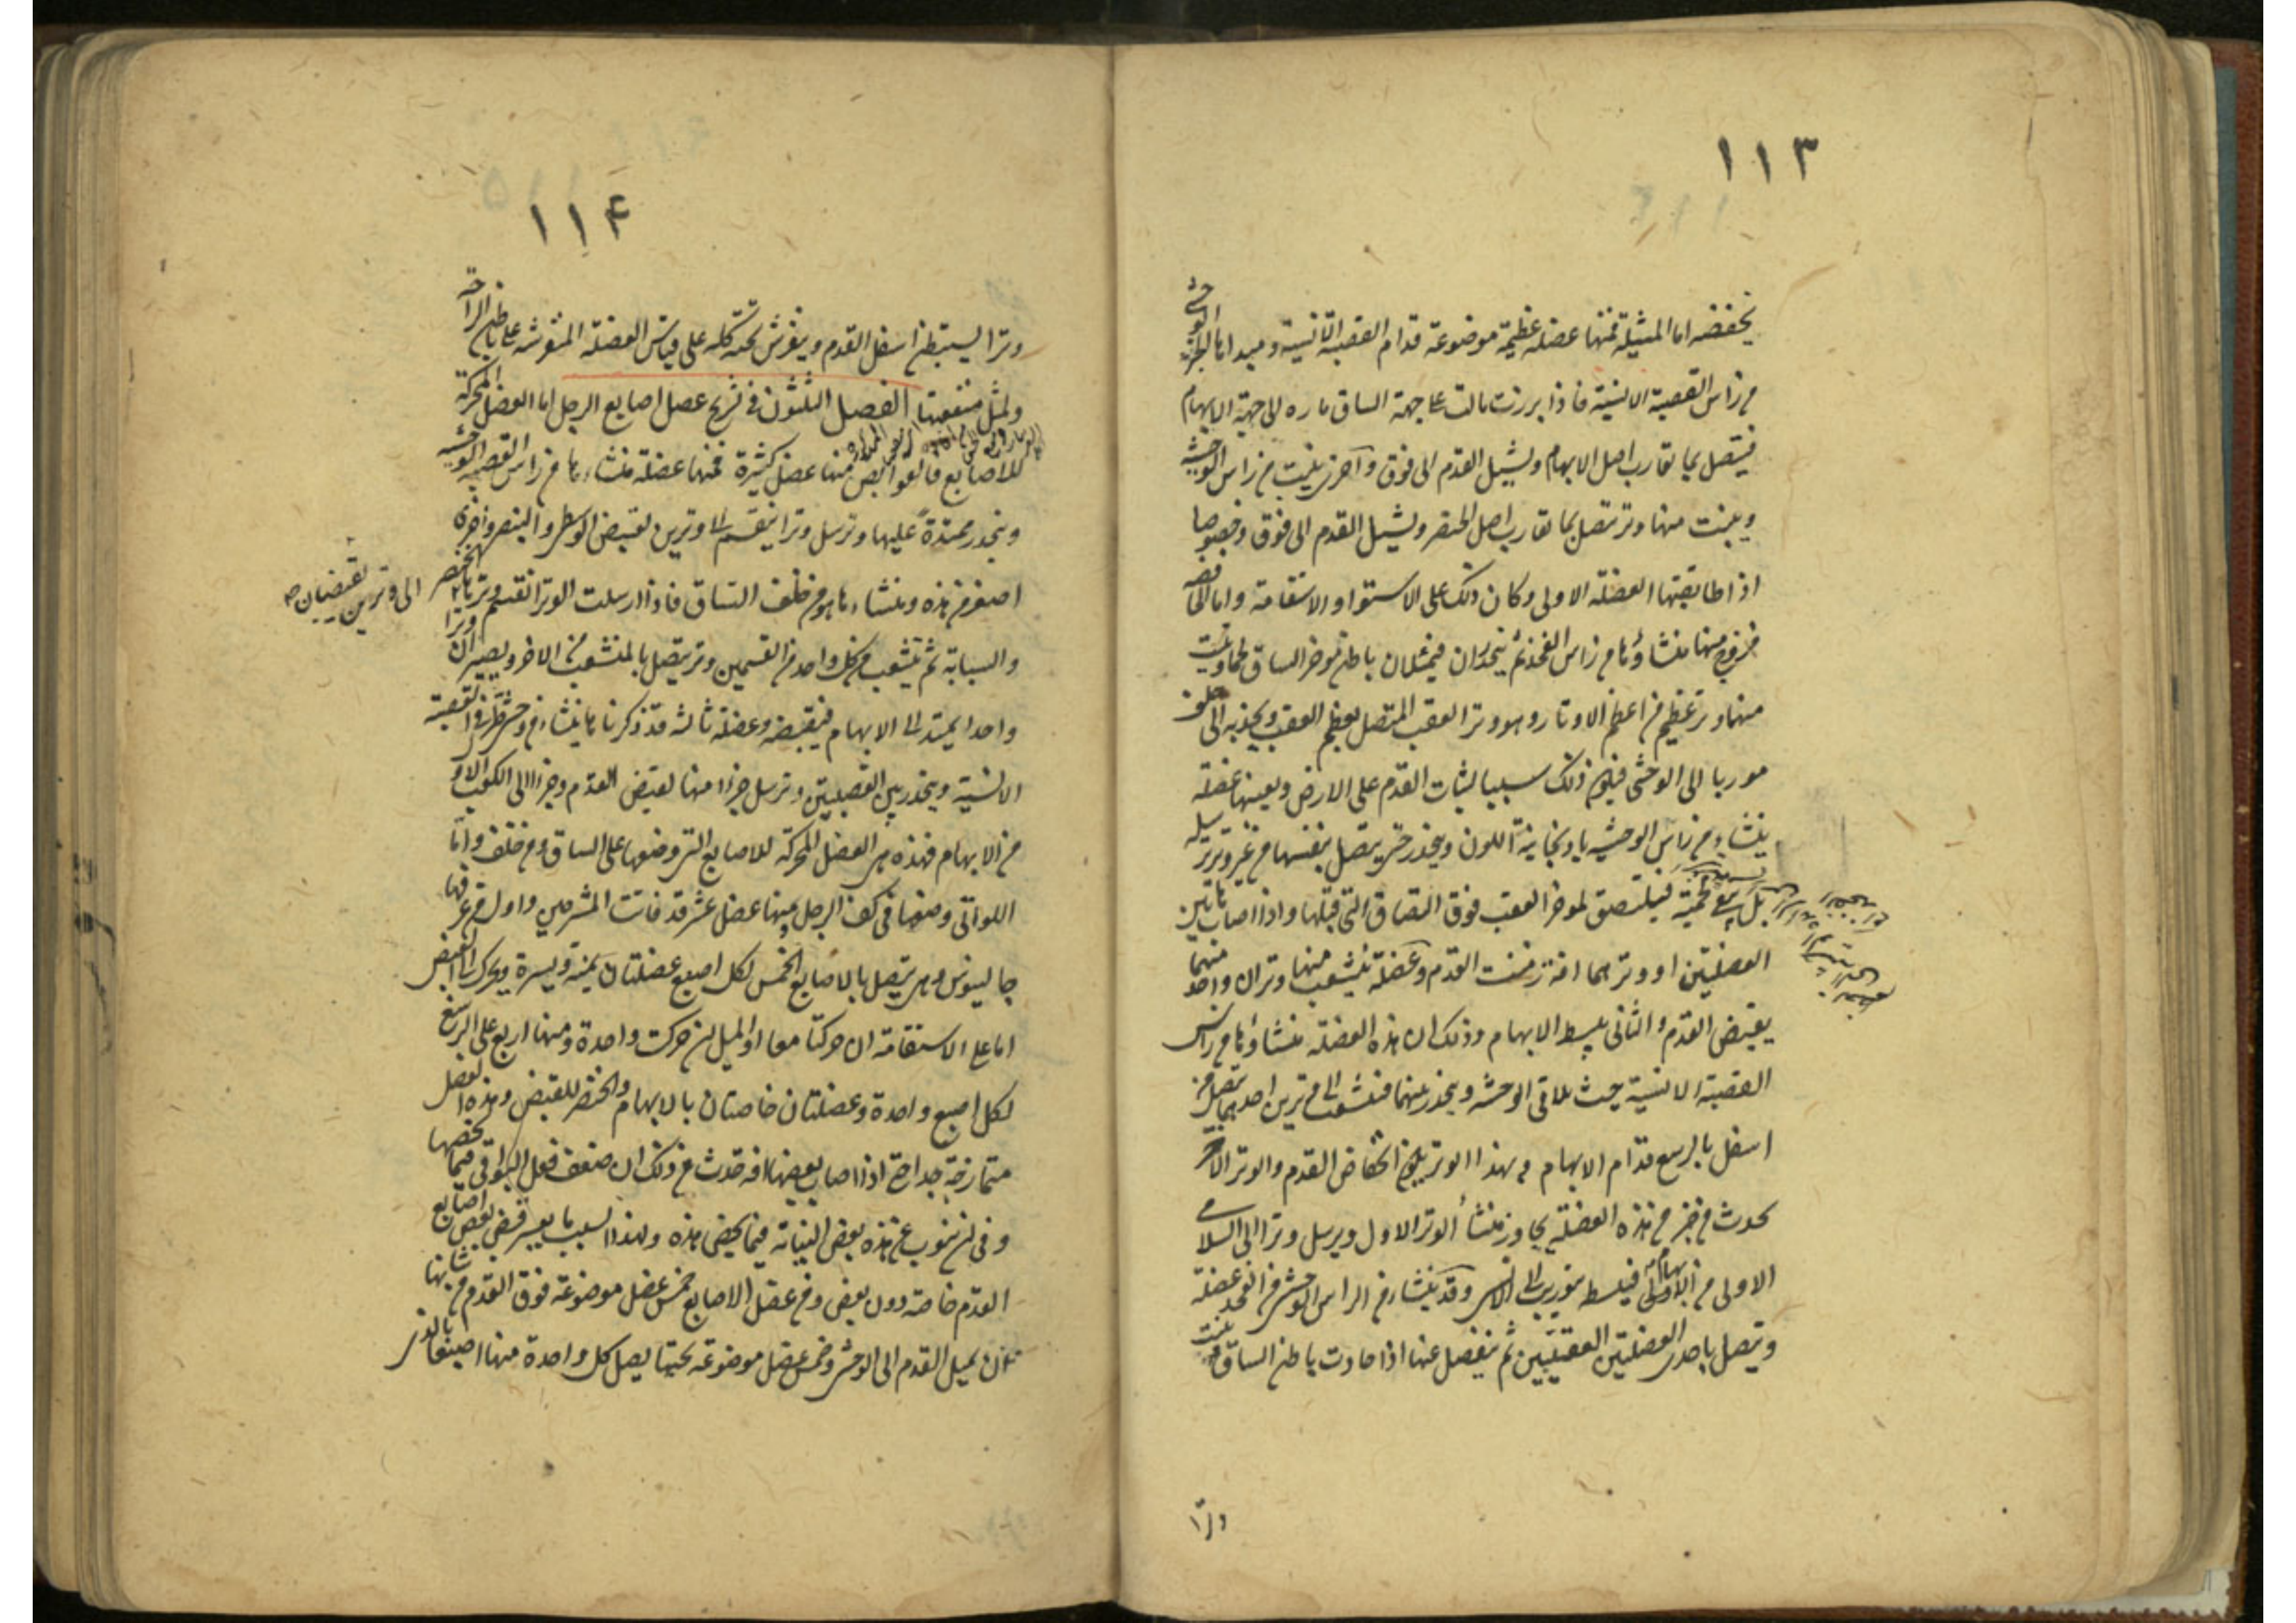 ١١٣
يخفضه اما المشيلة فمنها عضلة عظيمة موضوعة قدام القصبة الانسية ومبدأها الجزء الوحشى
من رأس القصبة الانسية فاذا برزت مالت على جهة الساق مارة الى جهة الابهام
فيتصل بما تقارب اصل الابهام ويشيل القدم الى فوق وآخرى ينبت من رأس الوحشية
وينبت منها وتر تتصل بما تقارب اصل الخنصر ويشيل القدم الى فوق وخصوصا
اذا طابقتها العضلة الاولى وكان ذلك على الاستواء والاستقامة واما الخافضة
فزوج منها منشاؤها من رأس الفخذ ثم ينحدران فيمتلان باطن موخر الساق لحما وينبت
منهما وتر عظيم من اعظم الاوتار وهو وتر العقب المتصل بعظم العقب ويجذبه الى خلف
موربا الى الوحشى فيكون ذلك سببا لثبات القدم على الارض ويعينها عضلة
ينشاء من رأس الوحشية باذنجانية اللون وينحدر حتى يتصل بنفسها من غير وتر ترسله
بل تبقى لحمية فيلتصق لموخر العقب فوق التصاق التى قبلها واذا اصاب هاتين
العضلتين او وترهما افة زمنت القدم وعضلة يتشعب منها وتران واحد منهما
يقبض القدم والثانى يبسط الابهام وذلك ان هذه العضلة منشاؤها من رأس
القصبة الانسية حيث تلاقى الوحشية وينحدر بينهما فتشعب الى وترين احدهما يتصل من
اسفل بالرسغ قدام الابهام وبهذا الوتر يكون انخفاض القدم والوتر الاخر
يحدث من جزء من هذه العضلة يجاوز منشأ الوتر الاول ويرسل وترا الى السلامى
الاولى من الابهام فيبسطه بتوريب الى الانسى وقد ينشاء من الراس الوحشى من الفخذ عضلة
وتتصل باحدى العضلتين العقبيتين ثم ينفصل عنها اذا حاذت باطن الساق وينبت
وترا
١١٤
وترا يستبطن اسفل القدم ويفرش تحته كله على قياس العضلة المفروشة على باطن الراحة
ولمثل منفعتها الفصل الثلثون فى تشريح عضل اصابع الرجل اما العضل المحركة
للاصابع فالقوابض منها عضل كثيرة فمنها عضلة منشاءها من رأس القصبة الوحشية
وينحدر ممتدة عليها وترسل وترا ينقسم الى وترين لقبض الوسطى والبنصر واخرى
اصغر من هذه ومنشاءها هو من خلف الساق فاذا ارسلت الوتر انقسم وترها
الى وترين تقبضان الخنصر
والسبابة ثم يتشعب من كل واحد من القسمين وتر يتصل بالمتشعب من الاخر ويصير ان وترا
واحدا يمتد الى الابهام فيقبضه وعضلة ثالثة قد ذكرناها ينشاء من وحشى طرف القصبة
الانسية وينحدر بين القصبتين وترسل جزءا منها لقبض القدم وجزءا الى الكعب الاول
من الابهام فهذه هى العضل المحركة للاصابع التى وضعها على الساق ومن خلف واما
اللواتى وضعها فى كف الرجل فمنها عضل عشر قد فاتت المشرحين واول من عرفها
جالينوس وهى يتصل بالاصابع الخمس لكل اصبع عضلتان يمنة ويسرة ويحرك الى القبض
اما على الاستقامة ان حركتا معا او الميل ان حركت واحدة ومنها اربع على الرسغ
لكل اصبع واحدة وعضلتان خاصتان بالابهام والخنصر للقبض وهذه العضل
متمازجة جدا حتى اذا اصاب بعضها افة حدث من ذلك ان ضعف فعل البواقى فيما يخصها
وفى ان ينوب عن هذه بعض النيابة فيما يخص هذه ولهذا السبب ما يعسر قبض بعض اصابع
القدم خاصة دون بعض ومن عضل الاصابع خمس عضل موضوعة فوق القدم من شانها
ان يميل القدم الى الوحشى وخمس عضل موضوعة تحتها يصل كل واحدة منها اصبعا بالذى